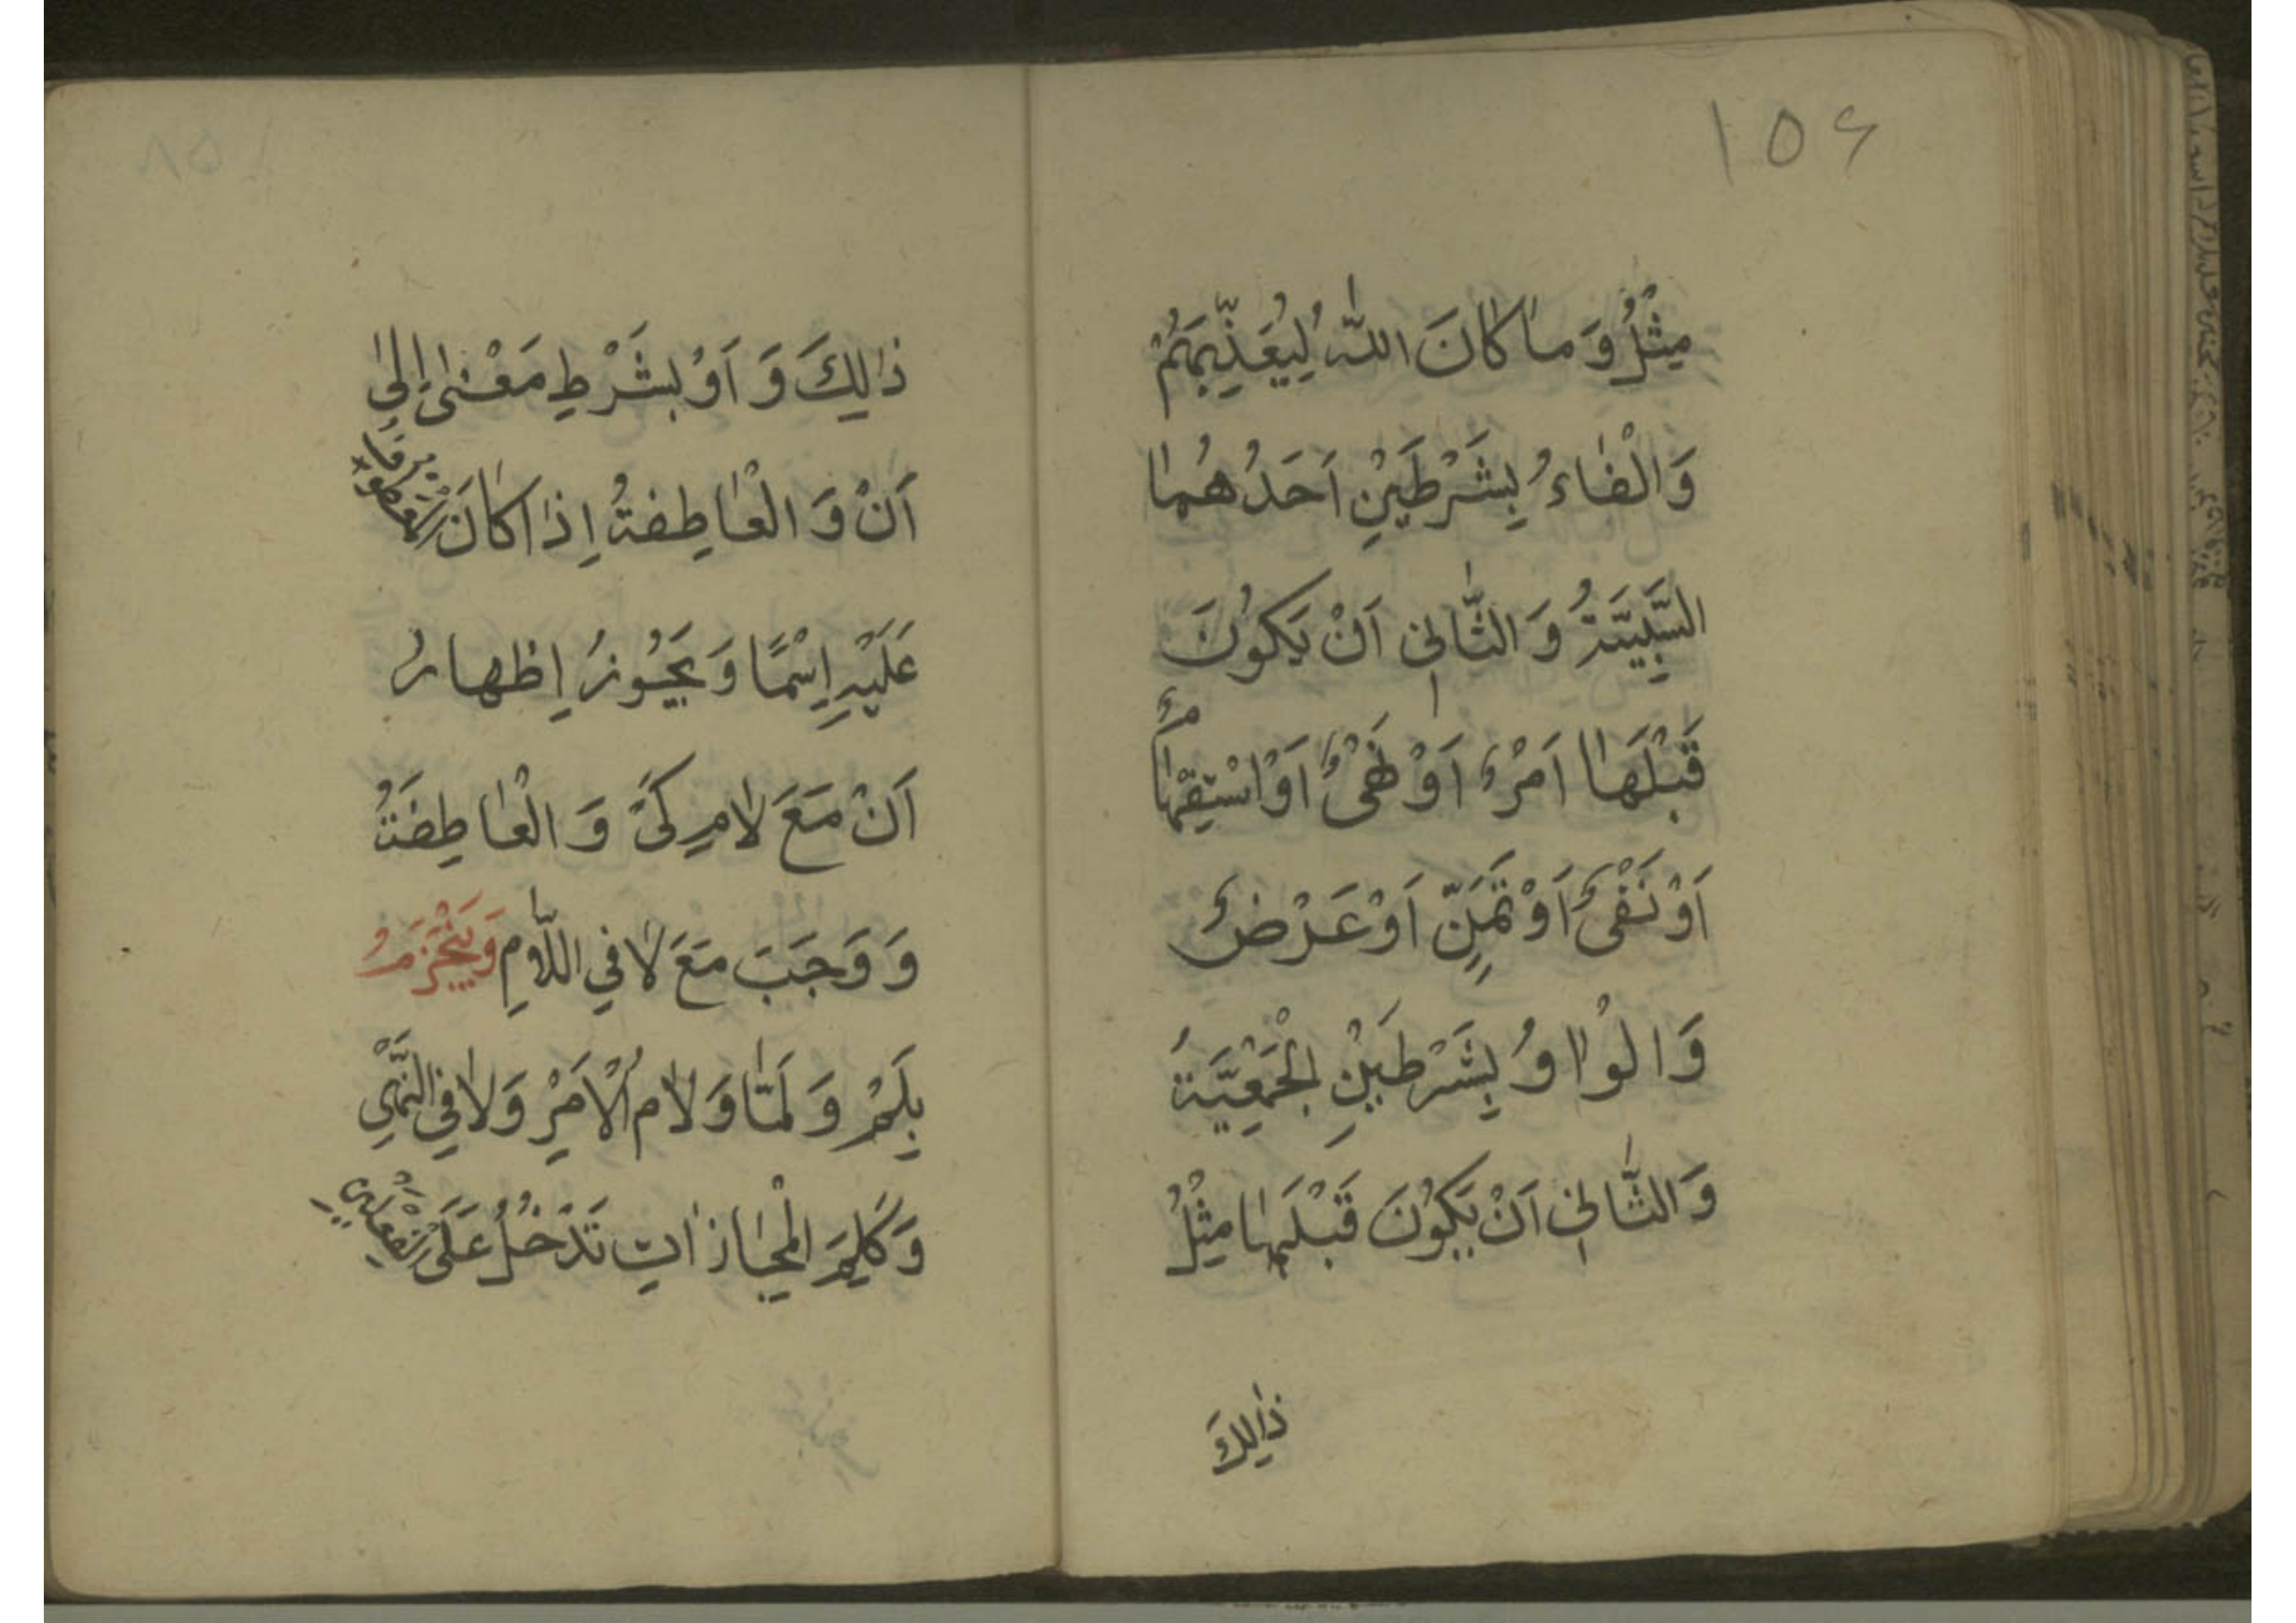 ۱۵۶
مِثْلُ وَمٰا كٰانَ اللّٰهُ لِيُعَذِّبَهُمْ
وَالْفٰاءُ بِشَرْطَيْنِ اَحَدُهُمٰا
السَّبَبِيَّةُ وَ الثّٰانِي اَنْ يَكُونَ
قَبْلَهٰا اَمْرٌ اَوْ نَهْيٌ اَوْ اسْتِفْهٰامٌ
اَوْ نَفْيٌ اَوْ تَمَنٍّ اَوْ عَرْضٌ
وَالْوٰاوُ بِشَرْطَيْنِ الْجَمْعِيَّةُ
وَالثّٰانِي اَنْ يَكُونَ قَبْلَهٰا مِثْلُ
ذٰلِكَ
ذٰلِكَ وَ اَوْ بِشَرْطِ مَعْنىٰ اِلىٰ
اَنْ وَ الْعٰاطِفَةُ اِذٰا كٰانَ الْمَعْطُوفُ
عَلَيْهِ اِسْمًا وَ يَجُوزُ اِظْهارُ
اَنْ مَعَ لٰامِ كَيْ وَ الْعٰاطِفَةُ
وَ وَجَبَ مَعَ لٰا فِي اللّٰامِ وَ يَنْجَزِمُ
بِلَمْ وَ لَمّٰا وَ لٰامِ الْاَمْرِ وَ لٰا فِي النَّهْيِ
وَ كَلِمِ الْمُجٰازٰاتِ تَدْخُلُ عَلَى الْفِعْلَيْنِ